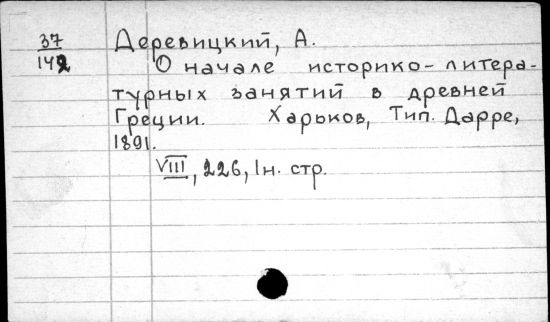 37
142
Деревицкий, А.
О начале историко-литера-
турных занятий в древней
Греции. Харьков, Тип. Дарре,
1891.
VIII, 226, 1н. стр.